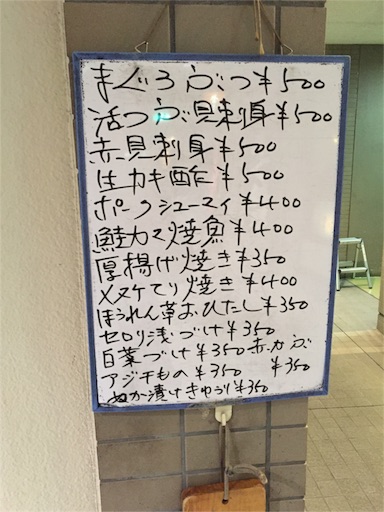 まぐろぶつ¥500
活つぶ貝刺身¥500
赤貝刺身¥500
生カキ酢¥500
ポークシューマイ¥400
鮭カマ焼魚¥400
厚揚げ焼き¥350
メヌケてり焼き¥400
ほうれん草おひたし¥350
セロリ浅づけ¥350
白菜づけ¥350 赤かぶ
アジ干もの¥350 ¥350
ぬか漬けきゅうり¥350